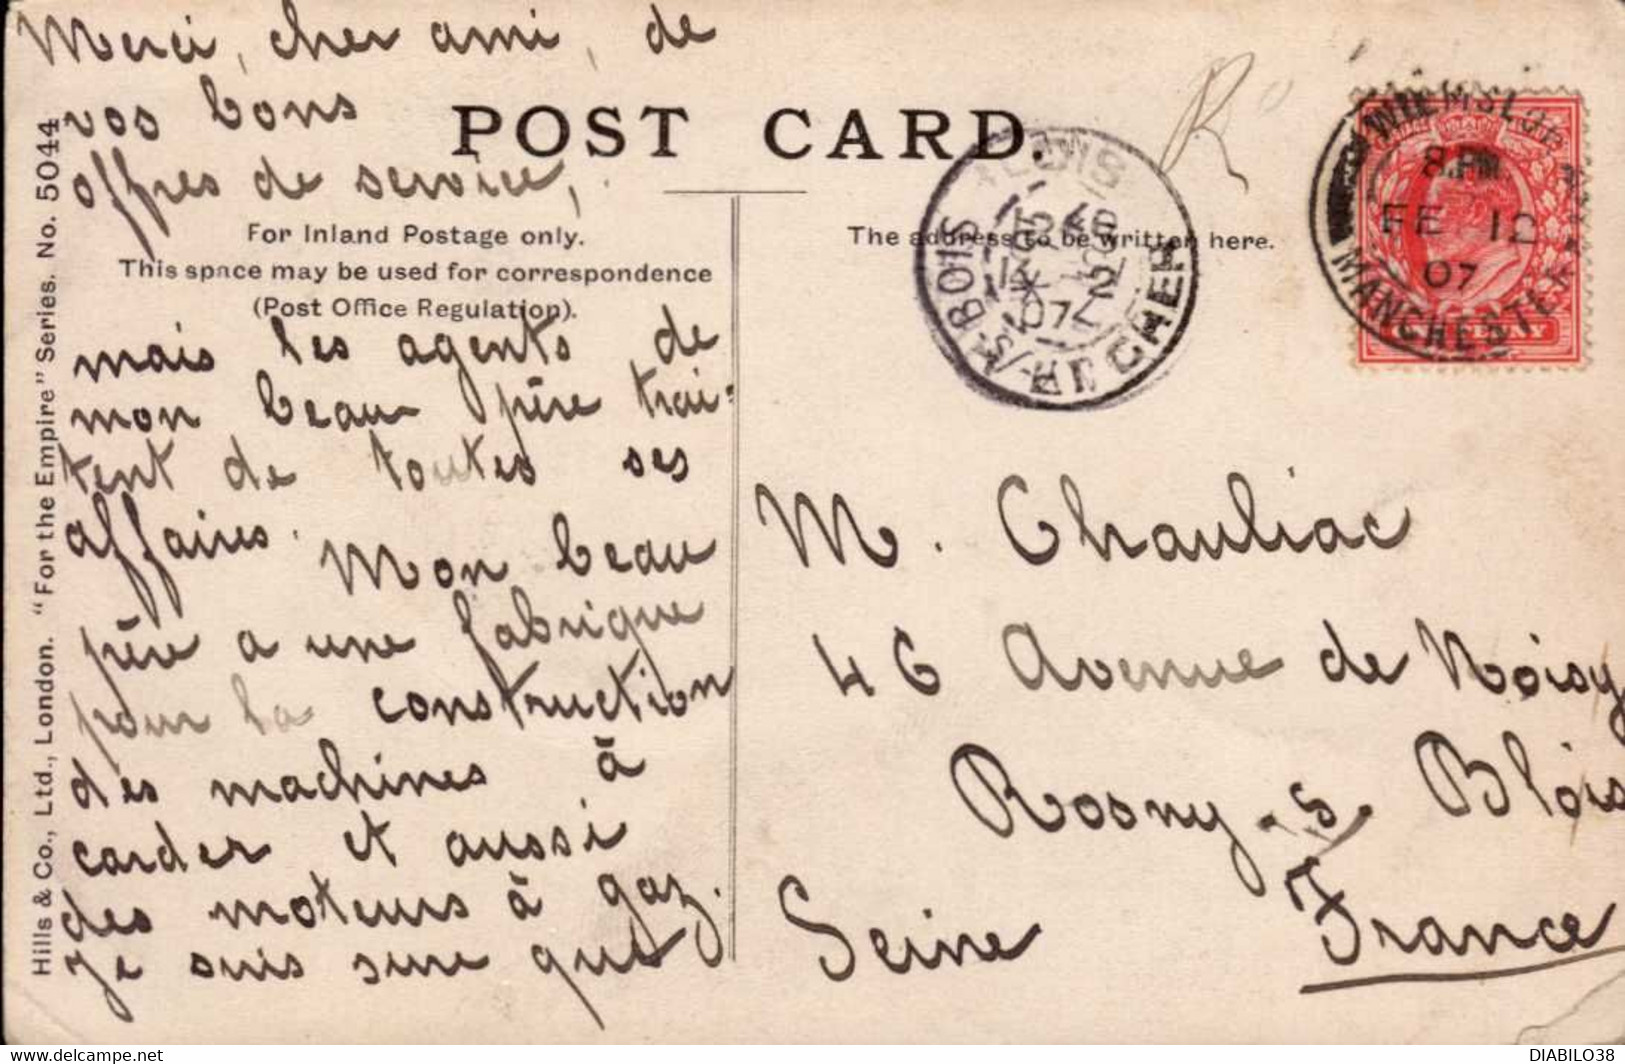 Merci, cher ami, de
vos bons
offres de service,
POST CARD.
For Inland Postage only.
This space may be used for correspondence
(Post Office Regulation).
The address to be written here.
mais les agents de
mon beau père trai-
tent de toutes ses
affaires. Mon beau
père a une fabrique
pour la construction
des machines à
carder et aussi
des moteurs à gaz.
Je suis sure que
M. Chauliac
46 Avenue de Noisy
Rosny-s/ Blois
Seine France
Hills & Co., Ltd., London. "For the Empire" Series. No. 5044
WILMSLOW
8.PM
FE 12
07
MANCHESTER
BOIS
LOIR ET CHER
07
DIABILO38